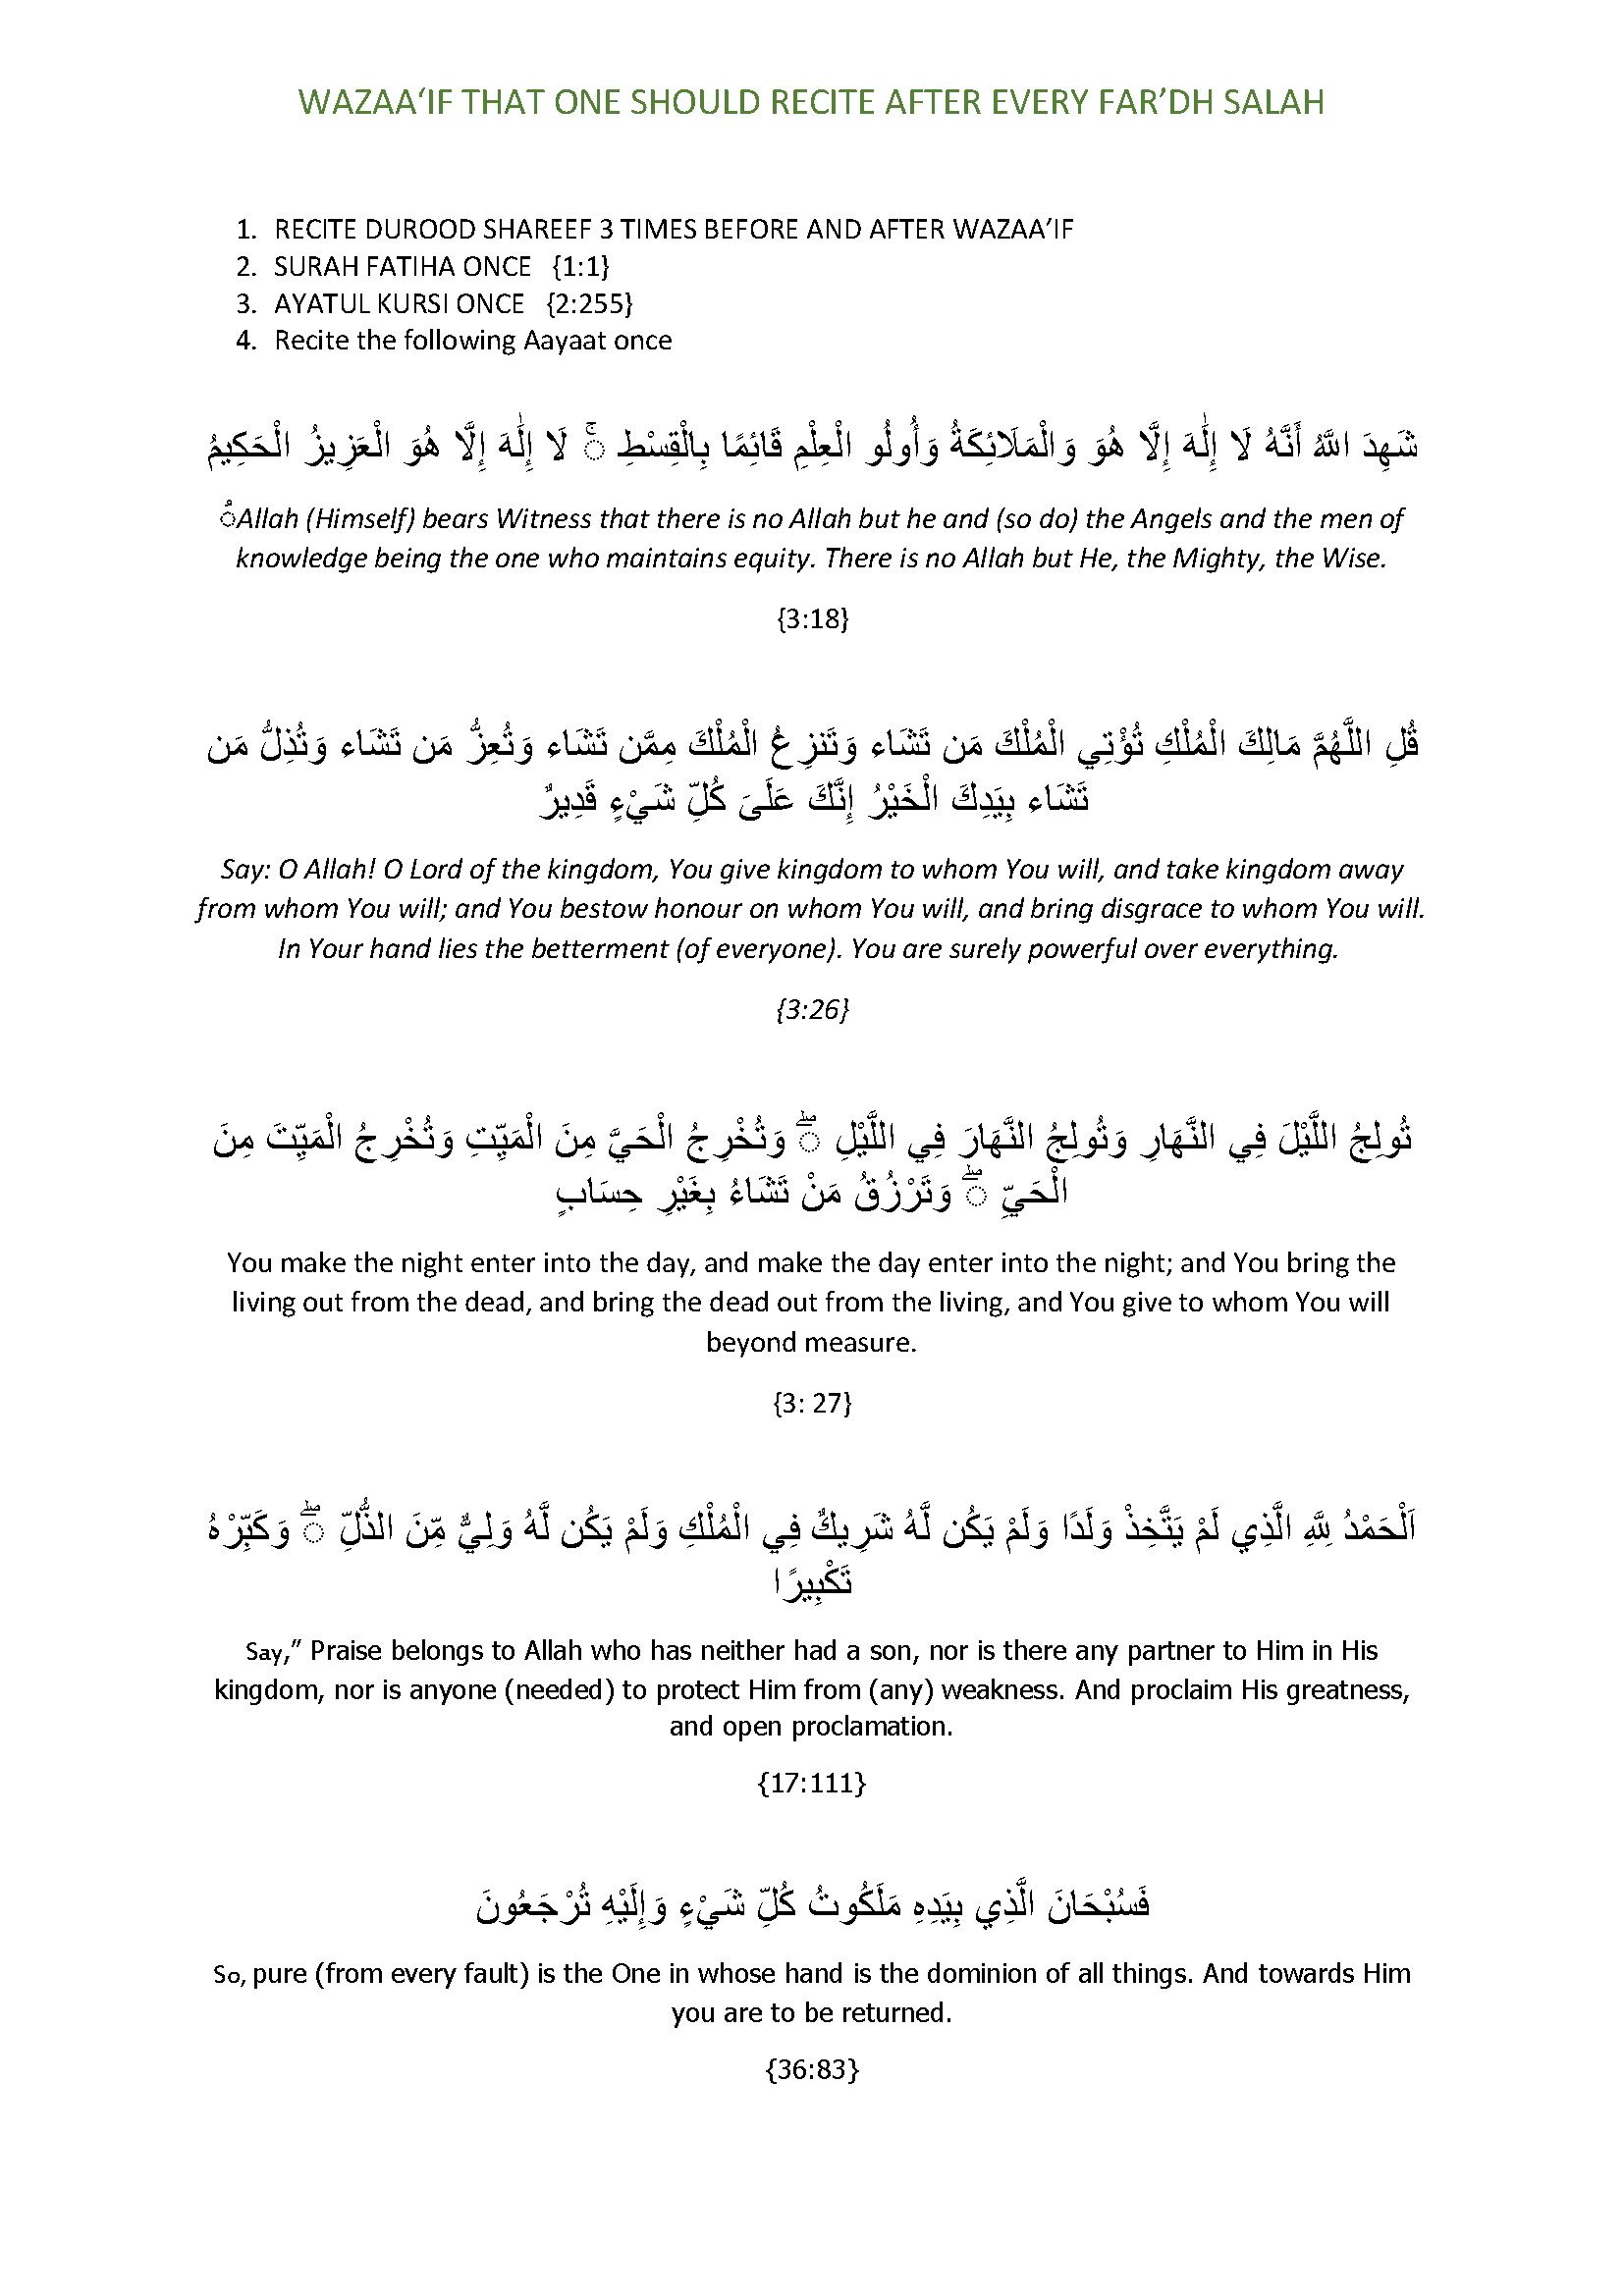 WAZAA‘IF THAT ONE SHOULD RECITE AFTER EVERY FAR’DH SALAH
1. RECITE DUROOD SHAREEF 3 TIMES BEFORE AND AFTER WAZAA’IF
2. SURAH FATIHA ONCE {1:1}
3. AYATUL KURSI ONCE {2:255}
4. Recite the following Aayaat once
شَهِدَ اللَّهُ أَنَّهُ لَا إِلَٰهَ إِلَّا هُوَ وَالْمَلَائِكَةُ وَأُولُو الْعِلْمِ قَائِمًا بِالْقِسْطِ ۚ لَا إِلَٰهَ إِلَّا هُوَ الْعَزِيزُ الْحَكِيمُ
Allah (Himself) bears Witness that there is no Allah but he and (so do) the Angels and the men of
knowledge being the one who maintains equity. There is no Allah but He, the Mighty, the Wise.
{3:18}
قُلِ اللَّهُمَّ مَالِكَ الْمُلْكِ تُؤْتِي الْمُلْكَ مَن تَشَاء وَتَنزِعُ الْمُلْكَ مِمَّن تَشَاء وَتُعِزُّ مَن تَشَاء وَتُذِلُّ مَن
تَشَاء بِيَدِكَ الْخَيْرُ إِنَّكَ عَلَىَ كُلِّ شَيْءٍ قَدِيرٌ
Say: O Allah! O Lord of the kingdom, You give kingdom to whom You will, and take kingdom away
from whom You will; and You bestow honour on whom You will, and bring disgrace to whom You will.
In Your hand lies the betterment (of everyone). You are surely powerful over everything.
{3:26}
تُولِجُ اللَّيْلَ فِي النَّهَارِ وَتُولِجُ النَّهَارَ فِي اللَّيْلِ ۖ وَتُخْرِجُ الْحَيَّ مِنَ الْمَيِّتِ وَتُخْرِجُ الْمَيِّتَ مِنَ
الْحَيِّ ۖ وَتَرْزُقُ مَنْ تَشَاءُ بِغَيْرِ حِسَابٍ
You make the night enter into the day, and make the day enter into the night; and You bring the
living out from the dead, and bring the dead out from the living, and You give to whom You will
beyond measure.
{3: 27}
اَلْحَمْدُ لِلَّهِ الَّذِي لَمْ يَتَّخِذْ وَلَدًا وَلَمْ يَكُن لَّهُ شَرِيكٌ فِي الْمُلْكِ وَلَمْ يَكُن لَّهُ وَلِيٌّ مِّنَ الذُّلِّ ۖ وَكَبِّرْهُ
تَكْبِيرًا
Say,” Praise belongs to Allah who has neither had a son, nor is there any partner to Him in His
kingdom, nor is anyone (needed) to protect Him from (any) weakness. And proclaim His greatness,
and open proclamation.
{17:111}
فَسُبْحَانَ الَّذِي بِيَدِهِ مَلَكُوتُ كُلِّ شَيْءٍ وَإِلَيْهِ تُرْجَعُونَ
So, pure (from every fault) is the One in whose hand is the dominion of all things. And towards Him
you are to be returned.
{36:83}